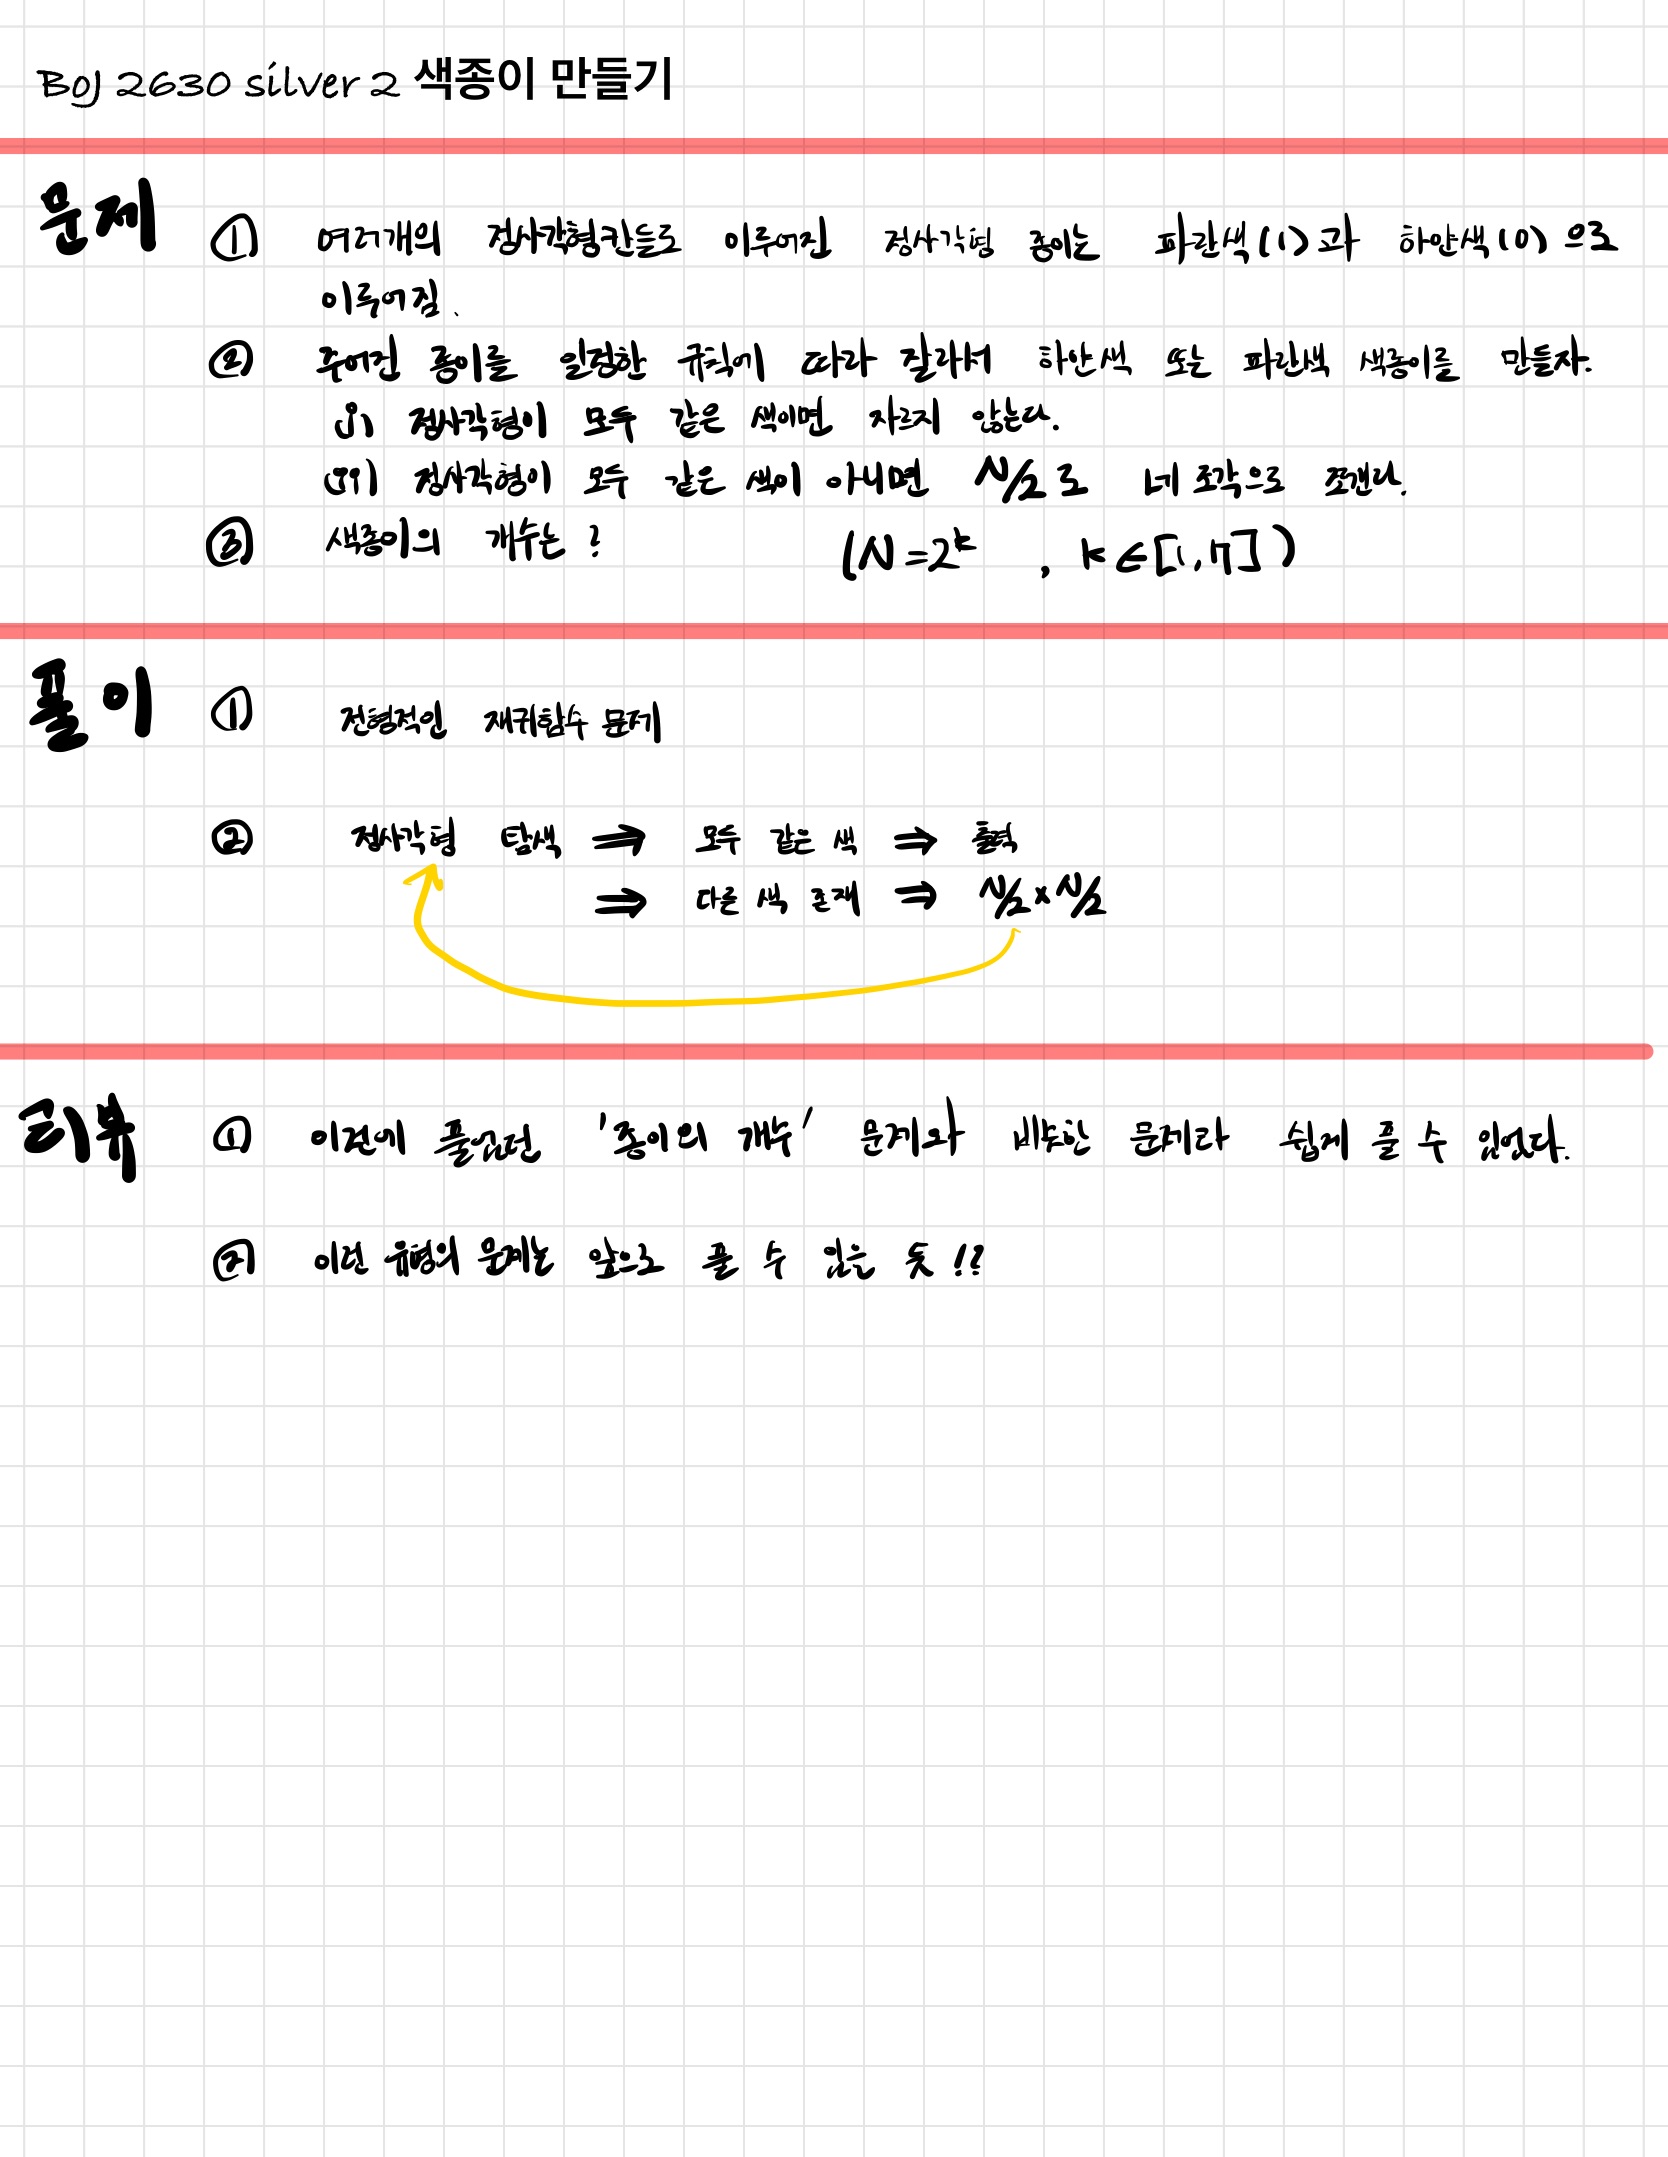 BOJ 2630 silver 2 색종이 만들기
문제 ① 여러개의 정사각형칸들로 이루어진 정사각형 종이는 파란색(1)과 하얀색(0)으로
이루어짐.
② 주어진 종이를 일정한 규칙에 따라 잘라서 하얀색 또는 파란색 색종이를 만들자.
(i) 정사각형이 모두 같은 색이면 자르지 않는다.
(ii) 정사각형이 모두 같은 색이 아니면 N/2로 네 조각으로 쪼갠다.
③ 색종이의 개수는? (N=2^k, k∈[1,7])
풀이 ① 전형적인 재귀함수 문제
② 정사각형 탐색 ⇒ 모두 같은 색 ⇒ 출력
⇒ 다른 색 존재 ⇒ N/2 x N/2
리뷰 ① 이전에 풀었던 '종이의 개수' 문제와 비슷한 문제라 쉽게 풀 수 있었다.
② 이런 유형의 문제는 앞으로 풀 수 있을 듯!?